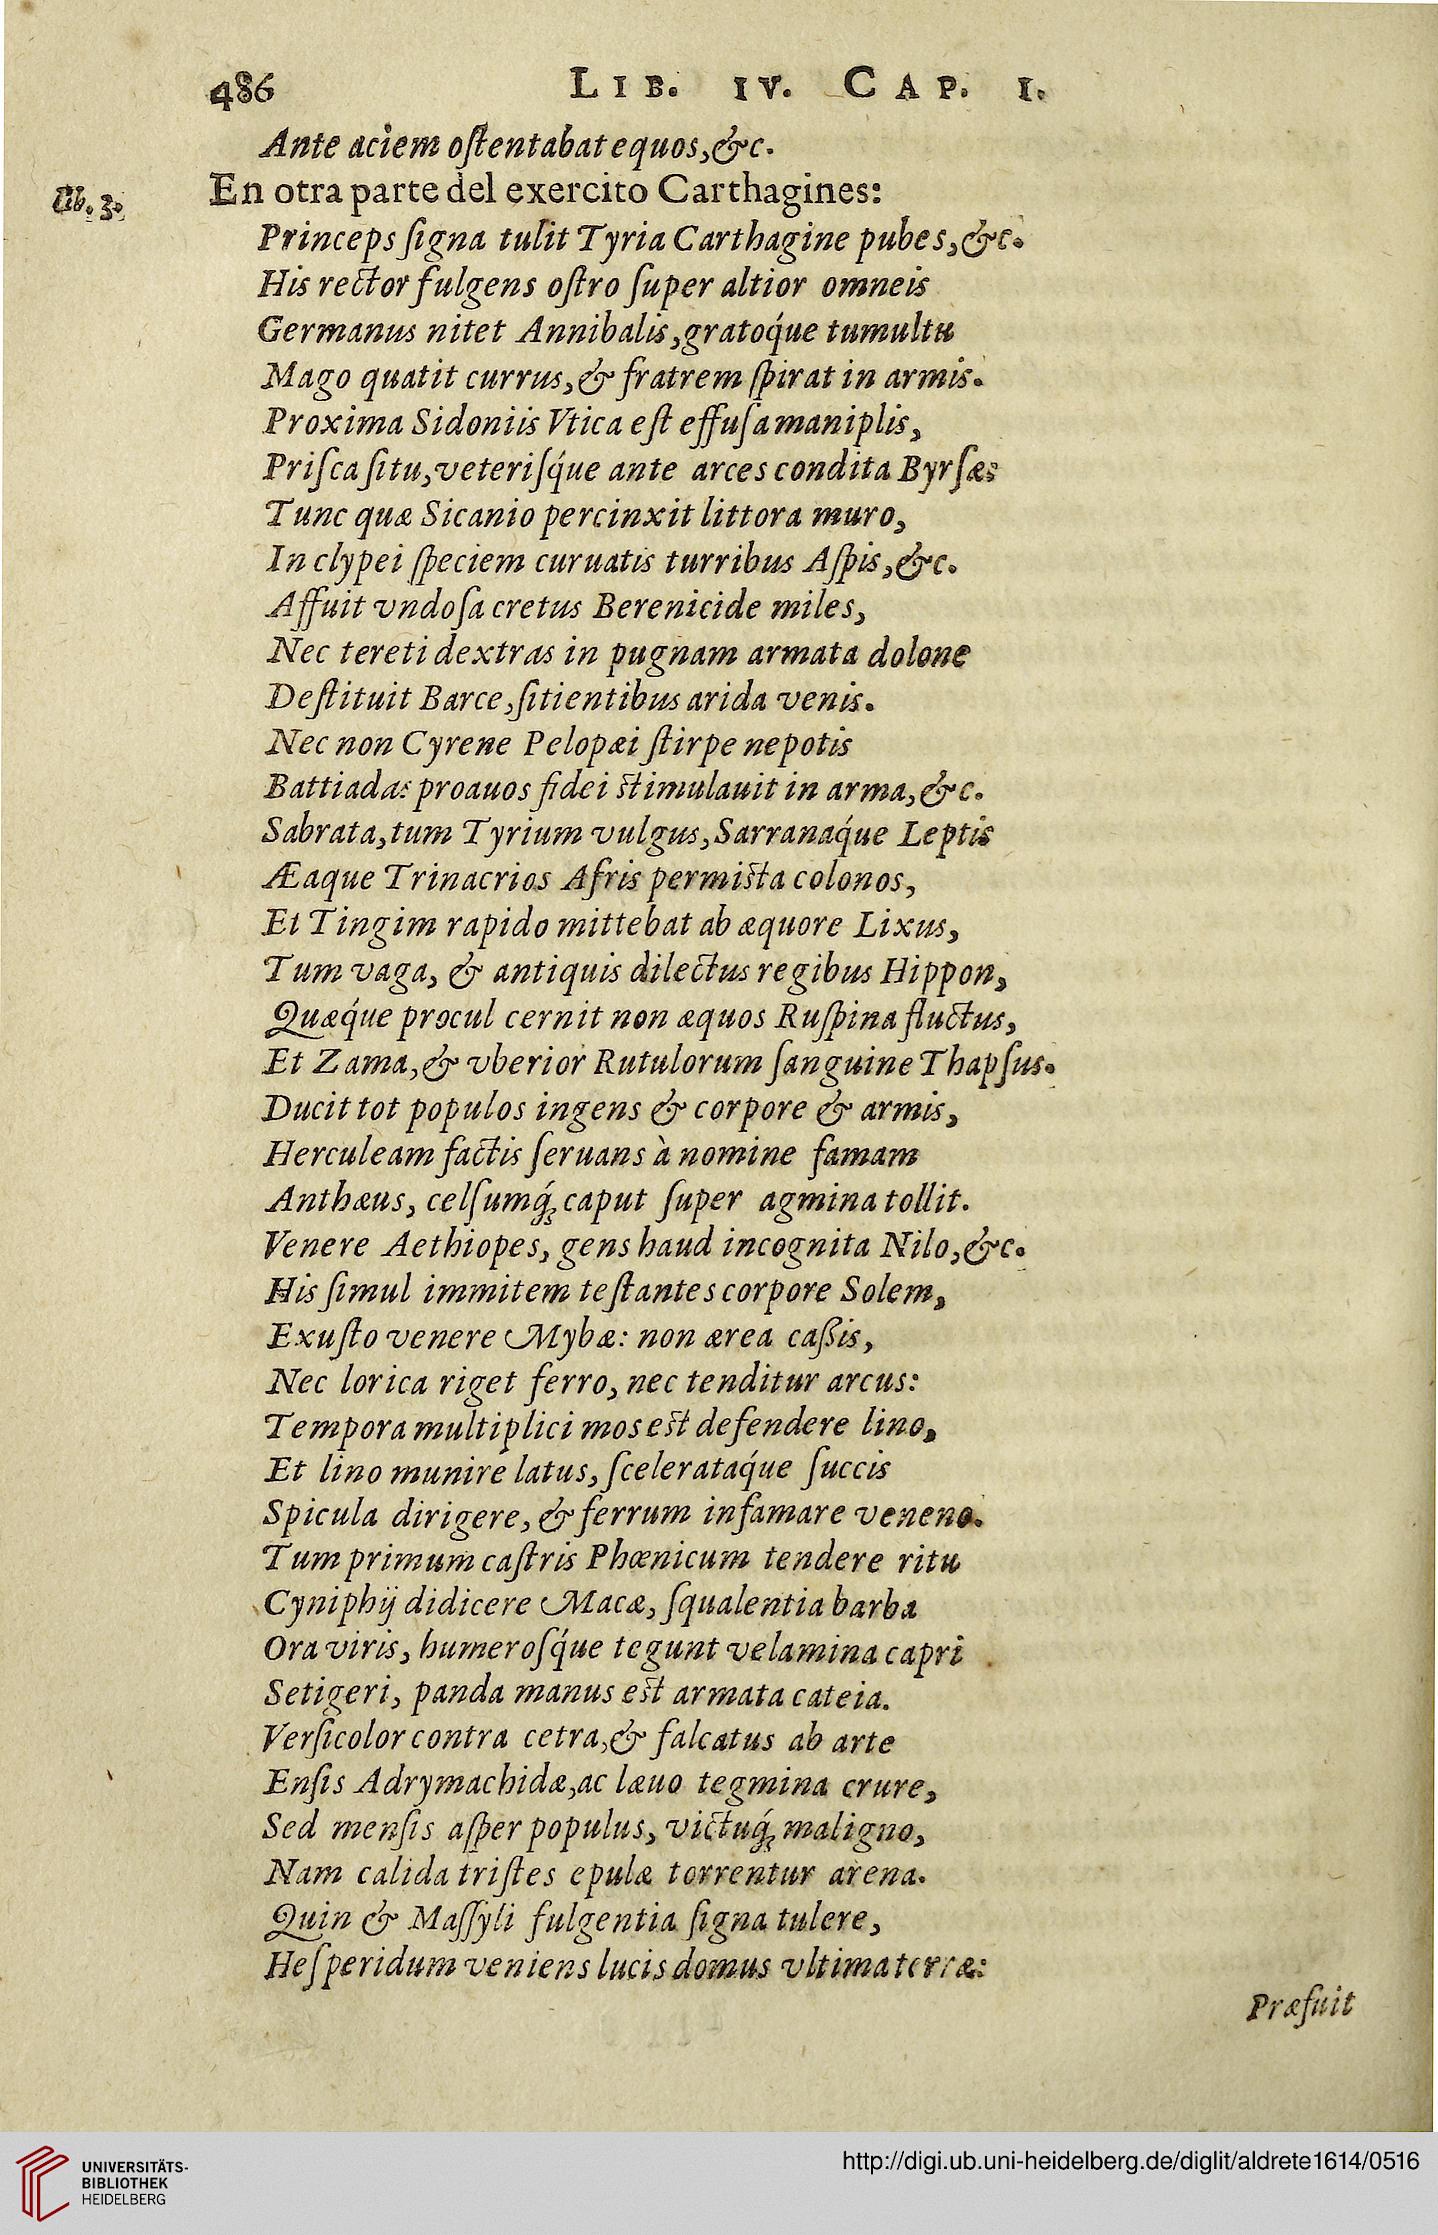 486 LIB. IV. CAP. I.
Ante aciem oſtentabat equos,&c.
lib. 3.
En otra parte del exercito Carthagines:
Princeps ſigna tulit Tyria Carthagine pubes,&c.
His rector fulgens oſtro ſuper altior omneis
Germanus nitet Annibalis,gratoq́ue tumultu
Mago quatit currus,& fratrem ſpirat in armis.
Proxima Sidoniis Vtica eſt effuſa maniplis,
Priſca ſitu,veteriſq́ue ante arces condita Byrſæ:
Tunc quæ Sicanio percinxit littora muro,
In clypei ſpeciem curuatis turribus Aſpis,&c.
Affuit vndoſa cretus Berenicide miles,
Nec tereti dextras in pugnam armata dolone
Deſtituit Barce,ſitientibus arida venis.
Nec non Cyrene Pelopæi ſtirpe nepotis
Battiadas proauos fidei ſtimulauit in arma,&c.
Sabrata,tum Tyrium vulgus,Sarranaq́ue Leptis
Æaque Trinacrios Afris permiſta colonos,
Et Tingim rapido mittebat ab æquore Lixus,
Tum vaga, & antiquis dilectus regibus Hippon,
Quæq́ue procul cernit non æquos Ruſpina fluctus,
Et Zama,& vberior Rutulorum ſanguine Thapſus.
Ducit tot populos ingens & corpore & armis,
Herculeam factis ſeruans à nomine famam
Anthæus, celſumq́; caput ſuper agmina tollit.
Venere Aethiopes, gens haud incognita Nilo,&c.
His ſimul immitem teſtantes corpore Solem,
Exuſto venere Mybæ: non ærea caßis,
Nec lorica riget ferro, nec tenditur arcus:
Tempora multiplici mos eſt defendere lino,
Et lino munire latus, ſcelerataq́ue ſuccis
Spicula dirigere, & ferrum infamare veneno.
Tum primum caſtris Phœnicum tendere ritu
Cyniphij didicere Macæ, ſqualentia barba
Ora viris, humeroſq́ue tegunt velamina capri
Setigeri, panda manus eſt armata cateia.
Verſicolor contra cetra,& falcatus ab arte
Enſis Adrymachidæ,ac læuo tegmina crure,
Sed menſis aſper populus, victuq́; maligno,
Nam calida triſtes epulæ torrentur arena.
Quin & Maſſyli fulgentia ſigna tulere,
Heſperidum veniens lucis domus vltima terræ:
Præfuit
UNIVERSITÄTS-
BIBLIOTHEK
HEIDELBERG
http://digi.ub.uni-heidelberg.de/diglit/aldrete1614/0516